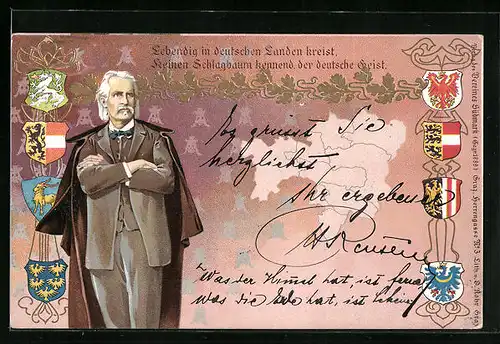 Lebendig in deutschen Landen kreist.
Keinen Schlagbaum kennend, der deutsche Geist.
Es grüsst Sie
herzlichst
Ihr ergebener
"Was der Himmel hat, ist
was die Erde hat, ist
Vereines Südmark Graz, Herrengasse № 3